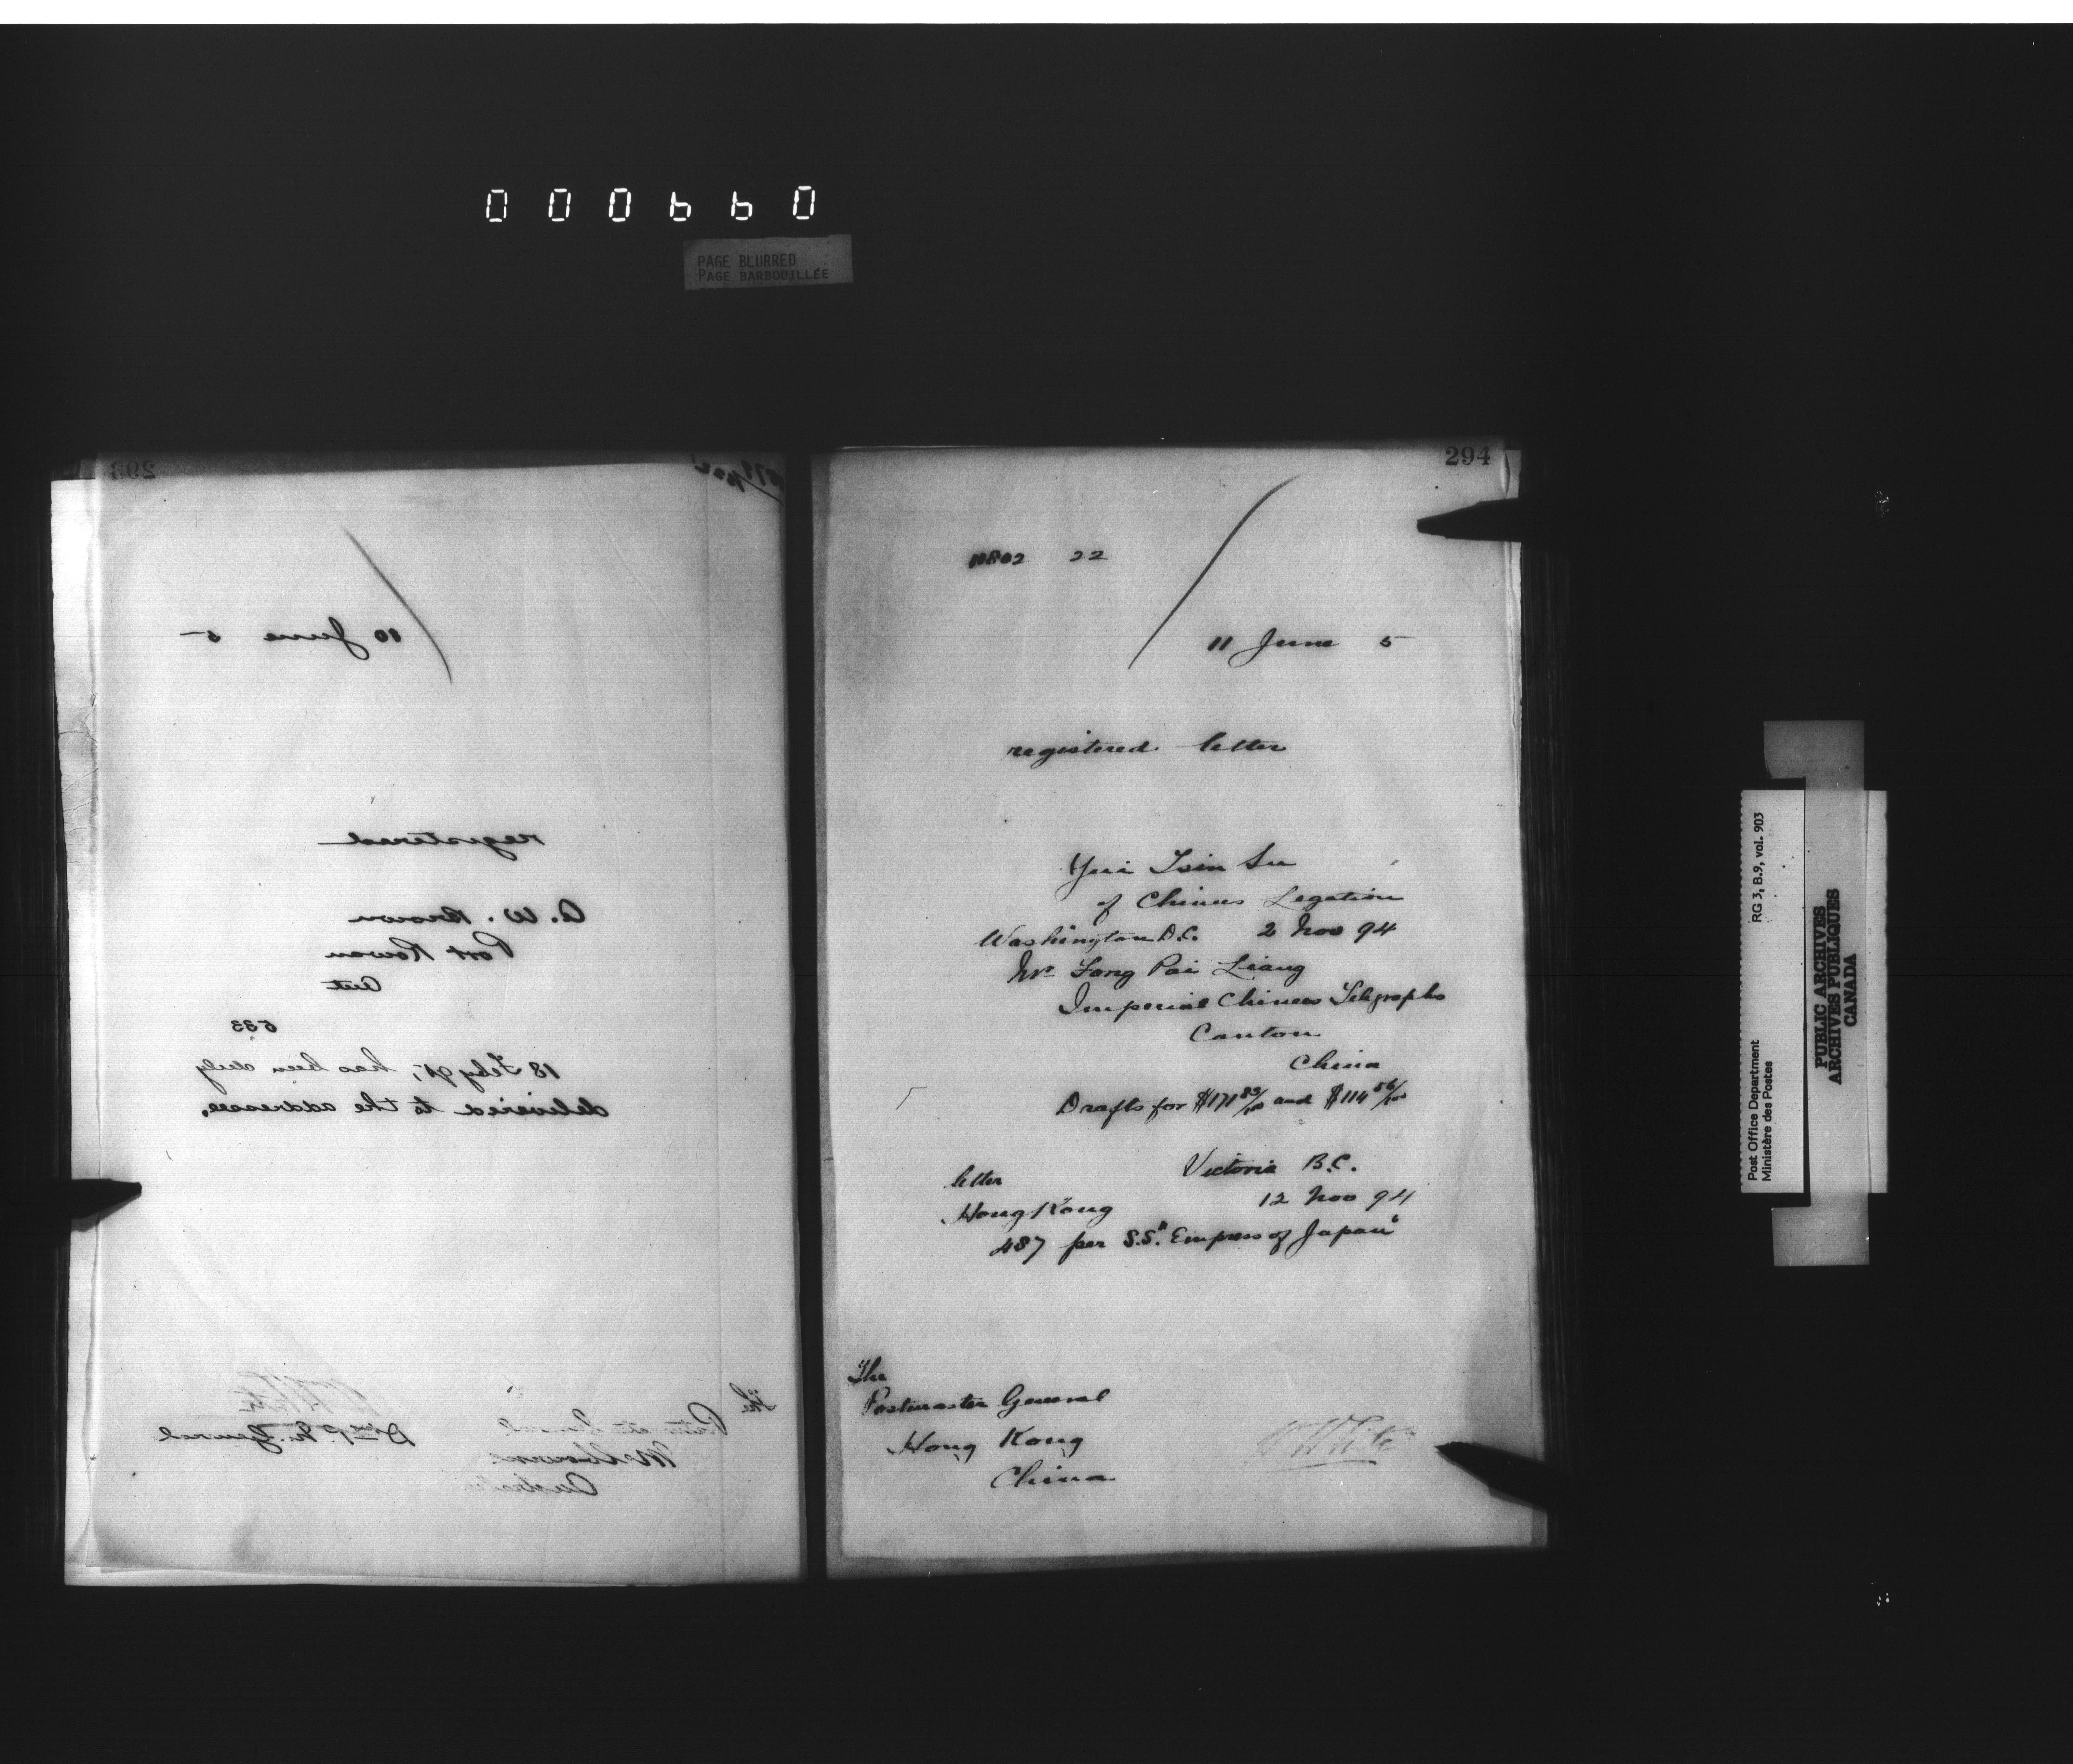 000660
PAGE BLURRED
PAGE BARBOUILLÉE
293
10 June 5
registered
A. W. Brown
Port Rowan
Ont
533
18 Feby 95, has been duly
delivered to the addressee.
The
General
Melbourne
Australia
White
D P. M. General
294
22
11 June 5
registered letter
Yui Tsin Su
of Chinese Legation
Washington D.C. 2 Nov 94
Mr Fong Pai Liang
Imperial Chinese Telegraphs
Canton
China
Drafts for $171 83/100 and $114 56/100
Victoria B.C.
letter
12 Nov 94
Hong Kong
487 per S.S. "Empress of Japan"
The
Postmaster General
Hong Kong
China
W White
RG 3, B.9, vol. 903
Post Office Department
Ministère des Postes
PUBLIC ARCHIVES
ARCHIVES PUBLIQUES
CANADA